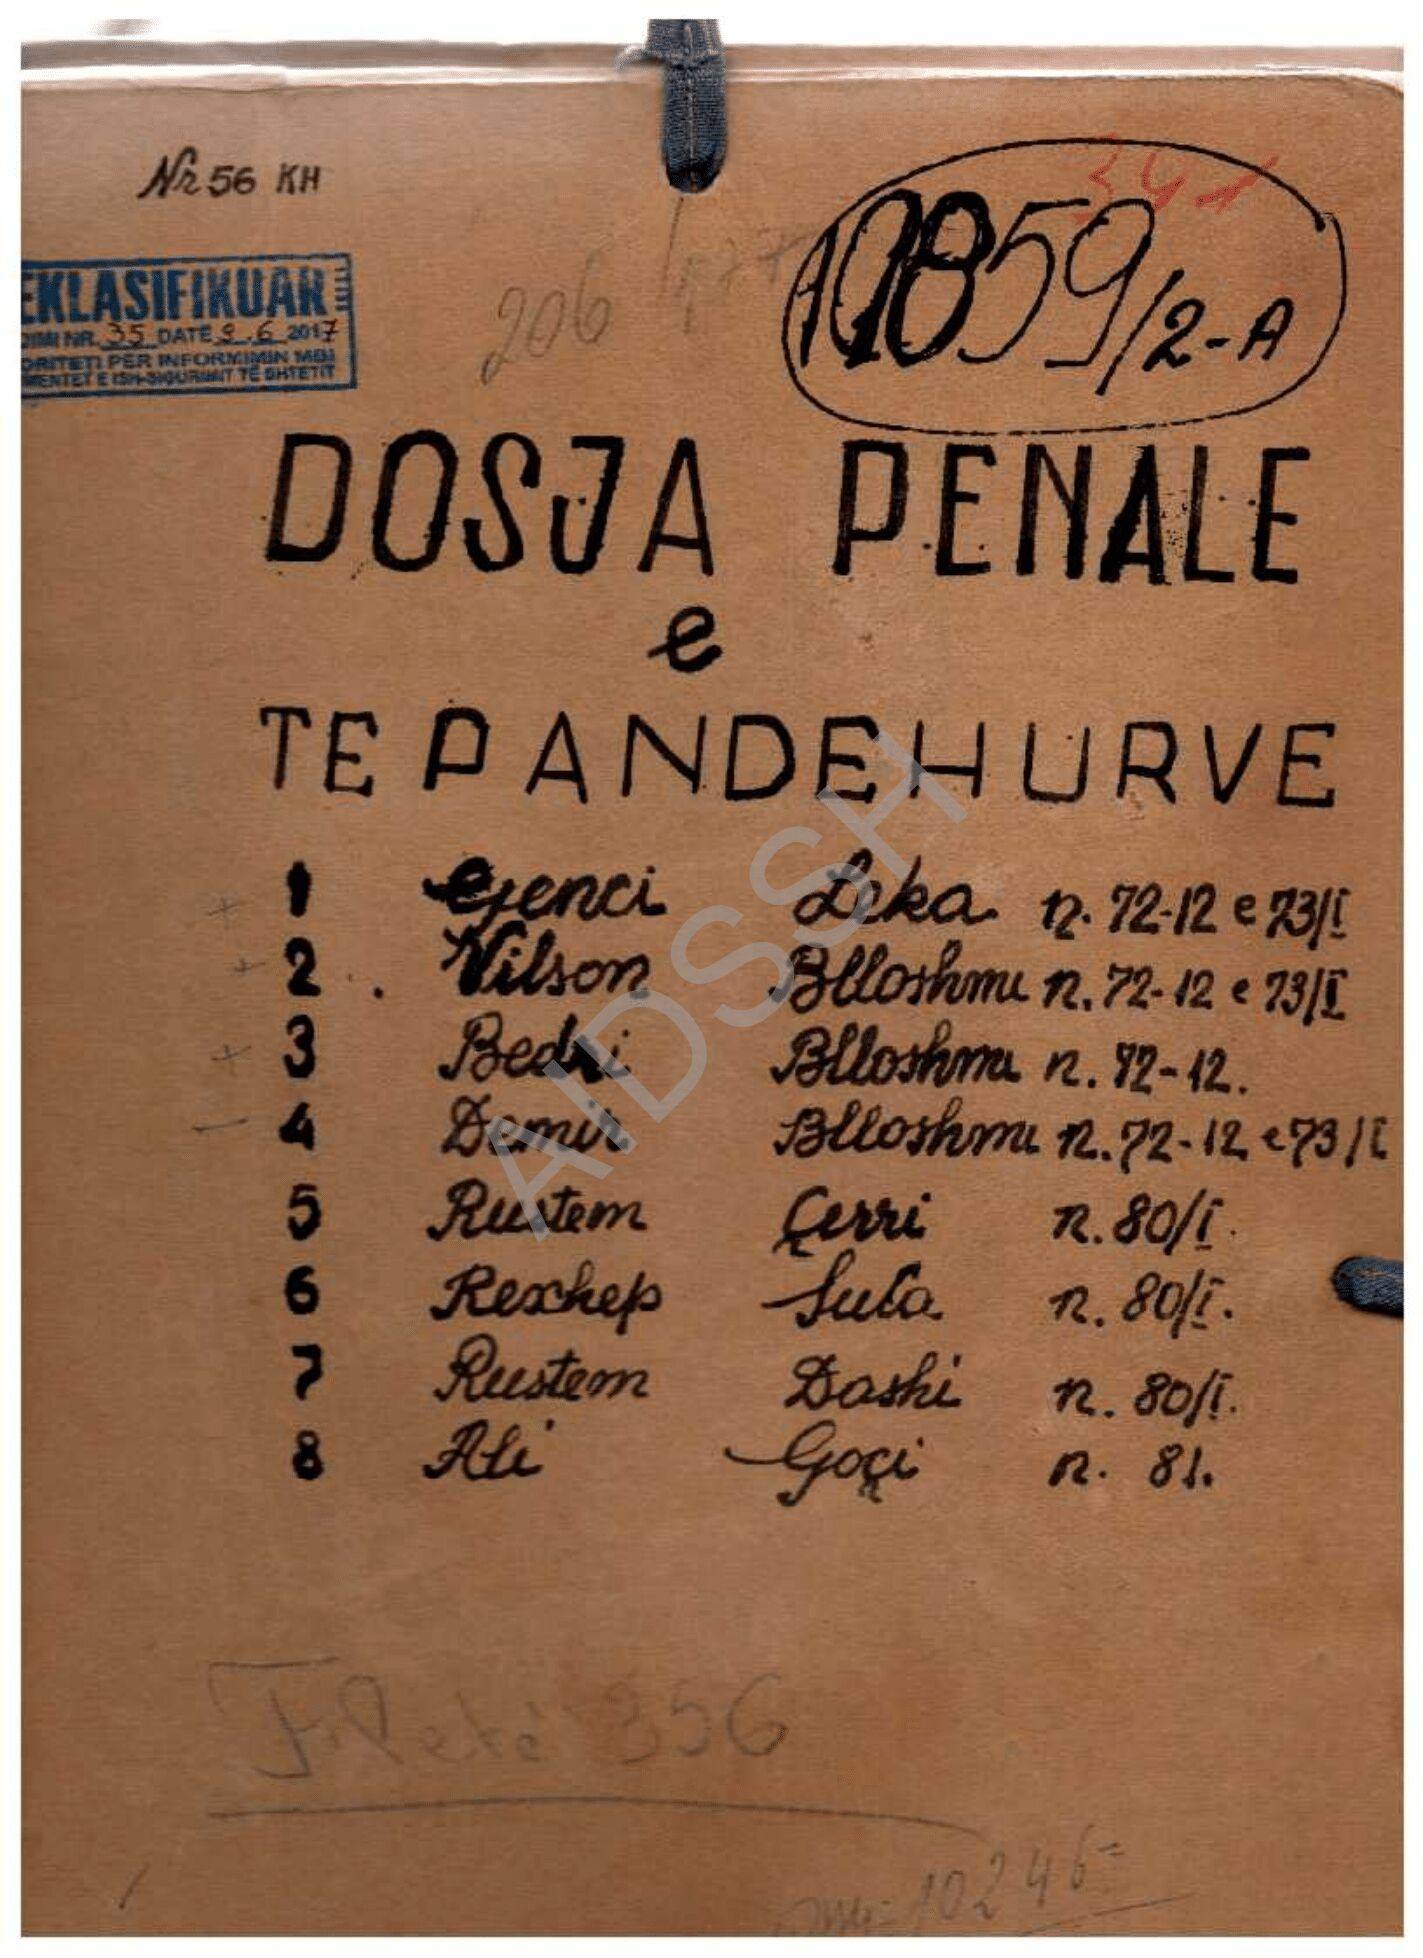 Nr 56 KH
EKLASIFIKUAR
DIMI NR. 35 DATE 9.6 2017
ORITETI PER INFORMIMIN MBI
MENTET E ISH-SIGURIMIT TE SHTETIT
206
10859/2-A
DOSJA PENALE
e
TE PANDEHURVE
1 Genci Leka n. 72-12 e 73/I
2 Vilson Blloshmi n. 72-12 e 73/I
3 Bedri Blloshmi n. 72-12.
4 Demir Blloshmi n. 72-12 e 73/I
5 Rustem Çerri n. 80/I.
6 Rexhep Sula n. 80/I.
7 Rustem Dashi n. 80/I.
8 Ali Goçi n. 81.
AIDSSH
Fletë 356
10246